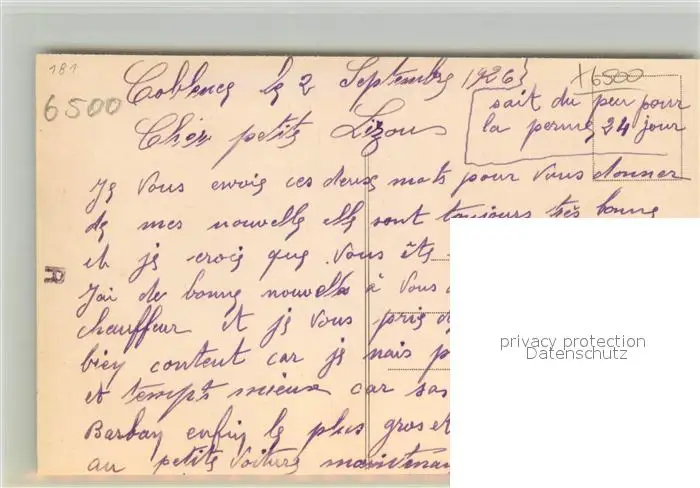 181
6500
Coblence le 2 Septembre 1926
X6500
sait du peu pour
la perme 24 jour
Chér petits Lizous
Je vous envois ces deux mots pour vous donner
de mes nouvelle elle sont toujours très bonne
et je crois que vous êts
J'ai de bonne nouvelle à vous
chauffeur et je vous pris
bien content car je nais p
et temps mieux car
Barbay enfin le plus gros et
au petite voiture maintenan
R
privacy protection
Datenschutz